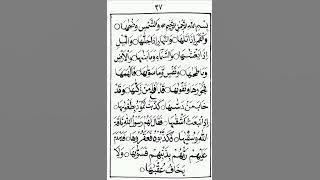 ٣٧
بِسْمِ اللهِ الرَّحْمٰنِ الرَّحِيْمِ وَالشَّمْسِ وَضُحٰهَا
وَالْقَمَرِ اِذَا تَلٰهَا وَالنَّهَارِ اِذَا جَلّٰهَا وَالَّيْلِ
اِذَا يَغْشٰهَا وَالسَّمَآءِ وَمَا بَنٰهَا وَالْاَرْضِ
وَمَا طَحٰهَا وَنَفْسٍ وَّمَا سَوّٰهَا فَاَلْهَمَهَا
فُجُوْرَهَا وَتَقْوٰهَا قَدْ اَفْلَحَ مَنْ زَكّٰهَا وَقَدْ
خَابَ مَنْ دَسّٰهَا كَذَّبَتْ ثَمُوْدُ بِطَغْوٰهَا
اِذِ انْبَعَثَ اَشْقٰهَا فَقَالَ لَهُمْ رَسُوْلُ اللهِ نَاقَةَ
اللهِ وَسُقْيٰهَا فَكَذَّبُوْهُ فَعَقَرُوْهَا فَدَمْدَمَ
عَلَيْهِمْ رَبُّهُمْ بِذَنْۢبِهِمْ فَسَوّٰهَا وَلَا
يَخَافُ عُقْبٰهَا